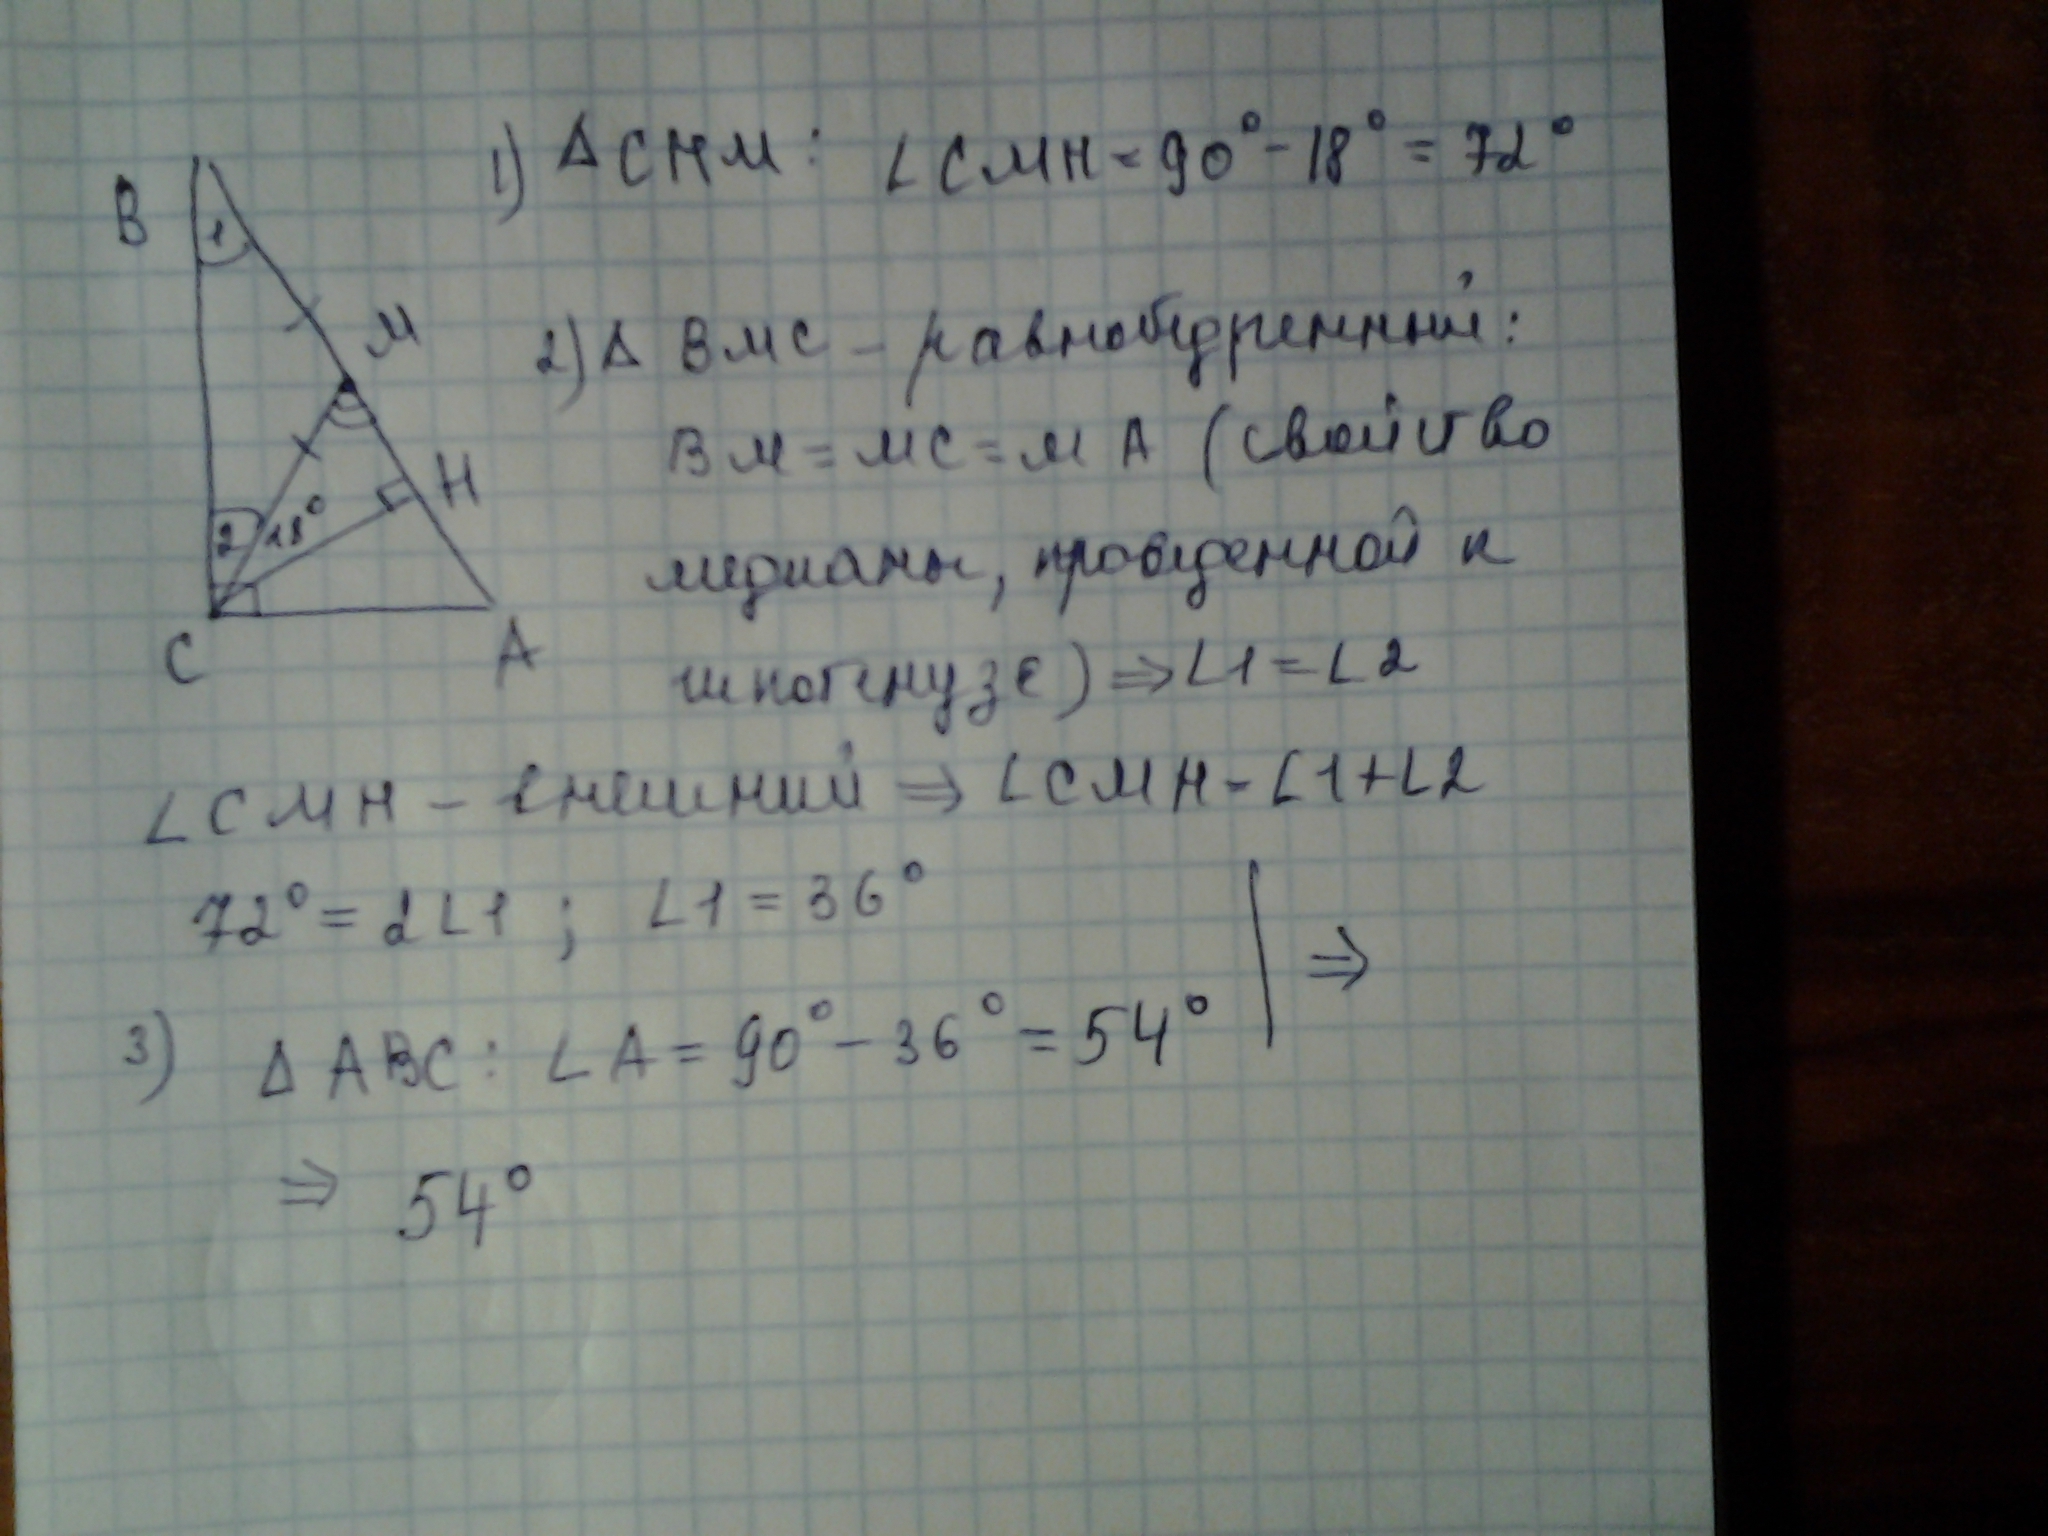 1) Δ CHM: ∠CMH = 90° - 18° = 72°
B
1
M
2) Δ BMC - равнобедренный:
BM = MC = MA (свойство
H
2
18°
медианы, проведенной к
C
A
гипотенузе) ⇒ ∠1 = ∠2
∠CMH - внешний ⇒ ∠CMH = ∠1 + ∠2
72° = 2∠1 ; ∠1 = 36°
⇒
3) Δ ABC: ∠A = 90° - 36° = 54°
⇒ 54°